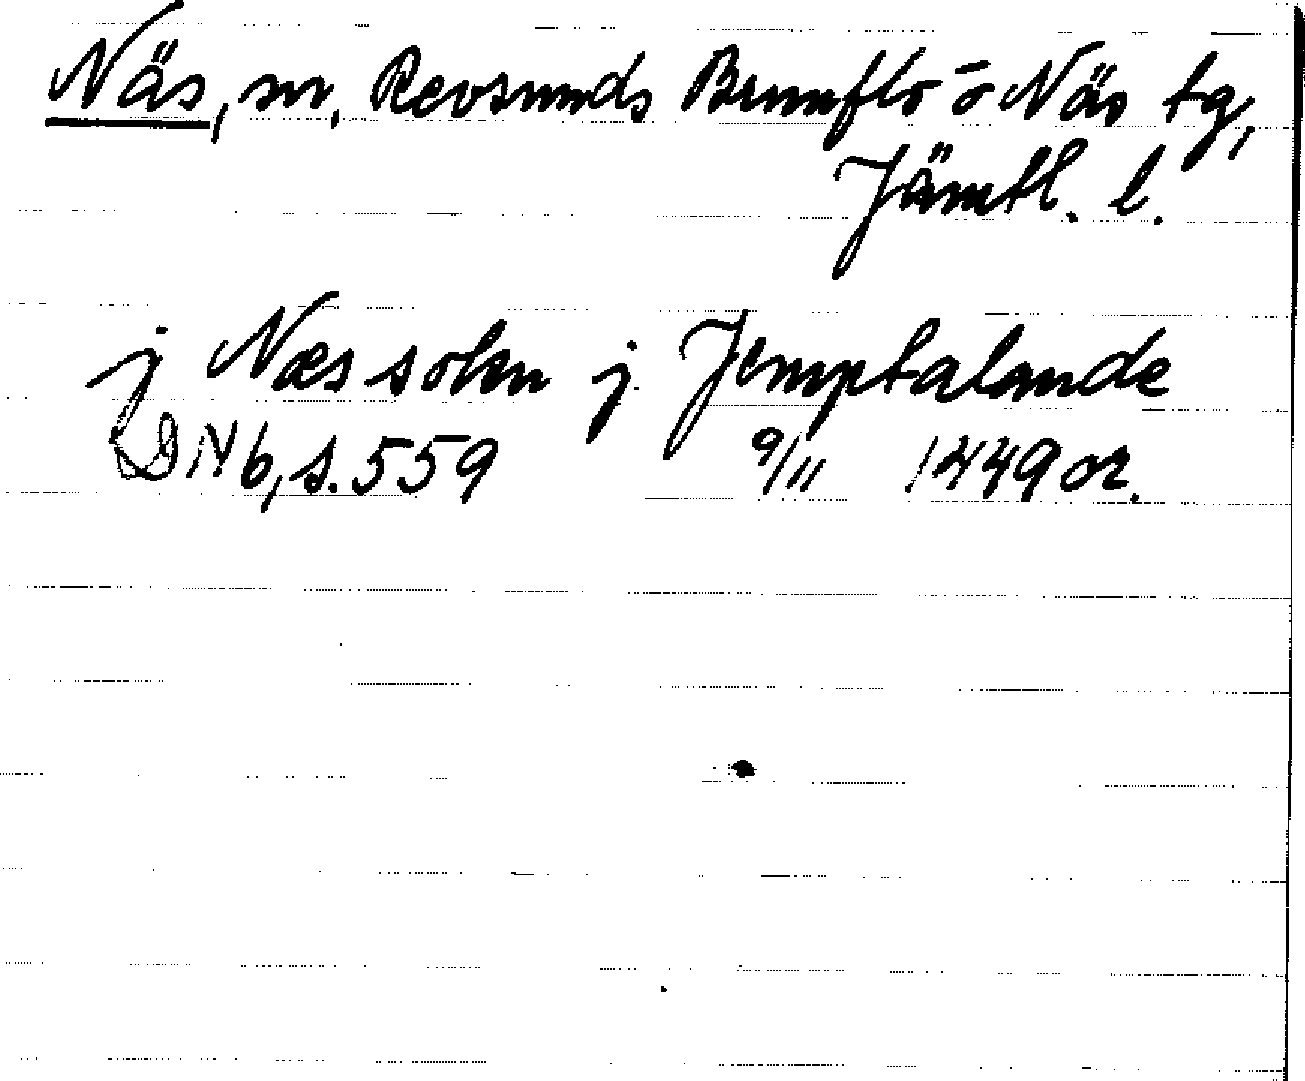 Näs, sn, Revsunds Brunflo o Näs tg,
Jämtl. l.
j Næs sokn j Jemptalande
DN 16, s. 559 9/11 1449 or.